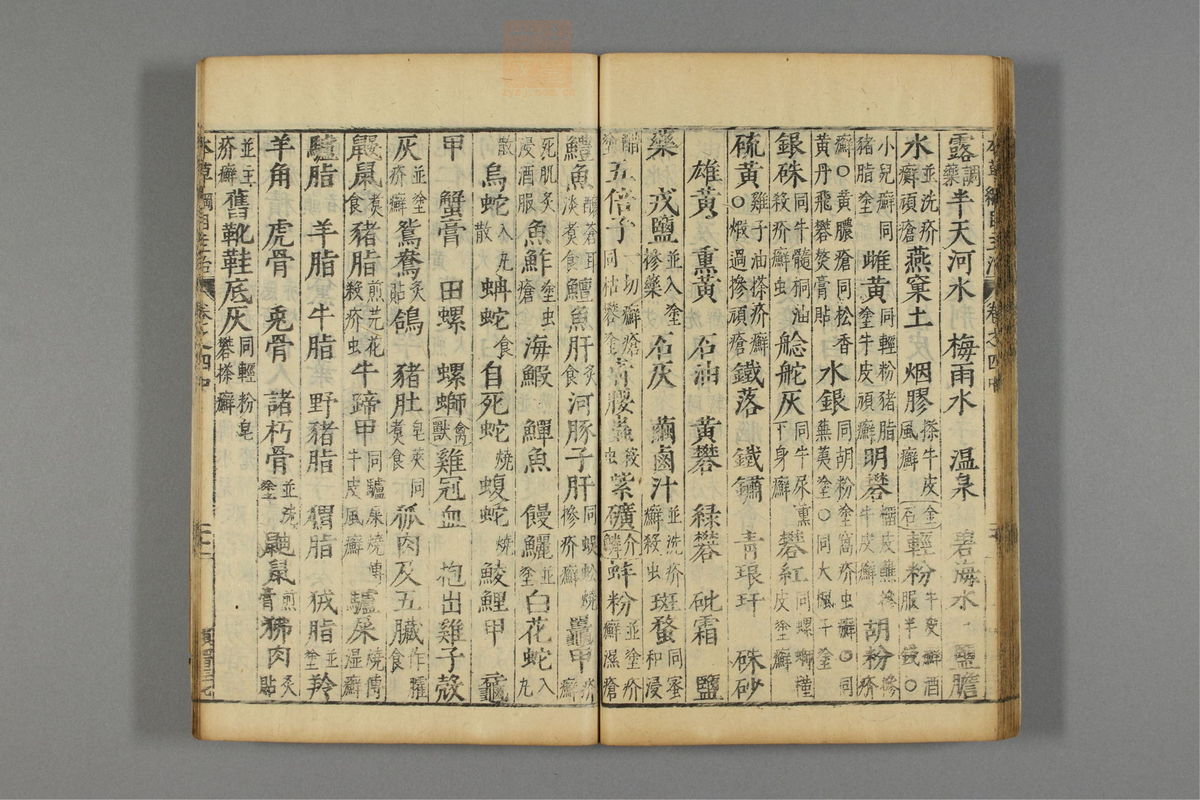 露調藥半天河水 梅雨水 温泉 碧海水 鹽膽
水並洗疥癬頑瘡燕窠土 烟膠搽牛皮風癬金石輕粉牛皮癬酒服半錢〇
小兒癬同豬脂塗雌黃同輕粉豬脂塗牛皮頑癬明礬牛皮癬胡粉摻疥
癬〇黃膿瘡同松香黃丹飛礬熬膏貼水銀同胡粉塗窩疥虫癬〇同蕪荑塗〇同大楓子塗
銀硃同牛髓桐油殺疥虫艌船灰同牛尿熏下身癬礬紅同螺螄塗皮癬
硫黃雞子油搽疥癬〇煅過摻頑瘡鐵落 鐵鏽 青琅玕 硃砂
雄黃 熏黃 石油 黃礬 綠礬 砒霜 鹽
藥 戎鹽並入塗摻藥石灰 繭鹵汁並洗疥癬殺虫斑蝥同蜜和浸
醋塗五倍子一切癬瘡同枯礬塗青腰蟲殺虫紫礦介鱗蚌粉並塗疥癬濕瘡
鱧魚鱣魚肝炙食河豚子肝同蜈蚣燒摻疥癬鼉甲疥癬
死肌炙浸酒服魚鮓塗虫瘡海鰕 鱓魚 鰻鱺並塗白花蛇入丸
散烏蛇入丸散蚺蛇食自死蛇燒蝮蛇燒鯪鯉甲 龜
甲 蟹膏 田螺 螺螄禽獸雞冠血 抱出雞子殼
灰並塗疥癬鴛鴦炙貼鴿 豬肚皂莢同煮食狐肉及五臟作臛食
鼹鼠煮食豬脂煎芫花殺疥虫牛蹄甲同驢屎燒傅牛皮風癬驢屎燒傅濕癬
驢脂 羊脂 牛脂 野豬脂 猬脂 狨脂並塗羚
羊角 虎骨 兎骨 諸朽骨並洗塗鼴鼠煎膏狒肉炙貼
並主疥癬舊靴鞋底灰同輕粉皂礬搽癬